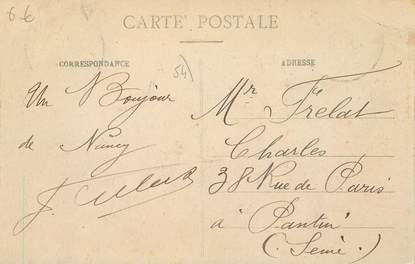 6€
CARTE POSTALE
CORRESPONDANCE
ADRESSE
54)
Un Bonjour
de Nancy
Mr Frélat
Charles
38 Rue de Paris
à Pantin
(Seine)